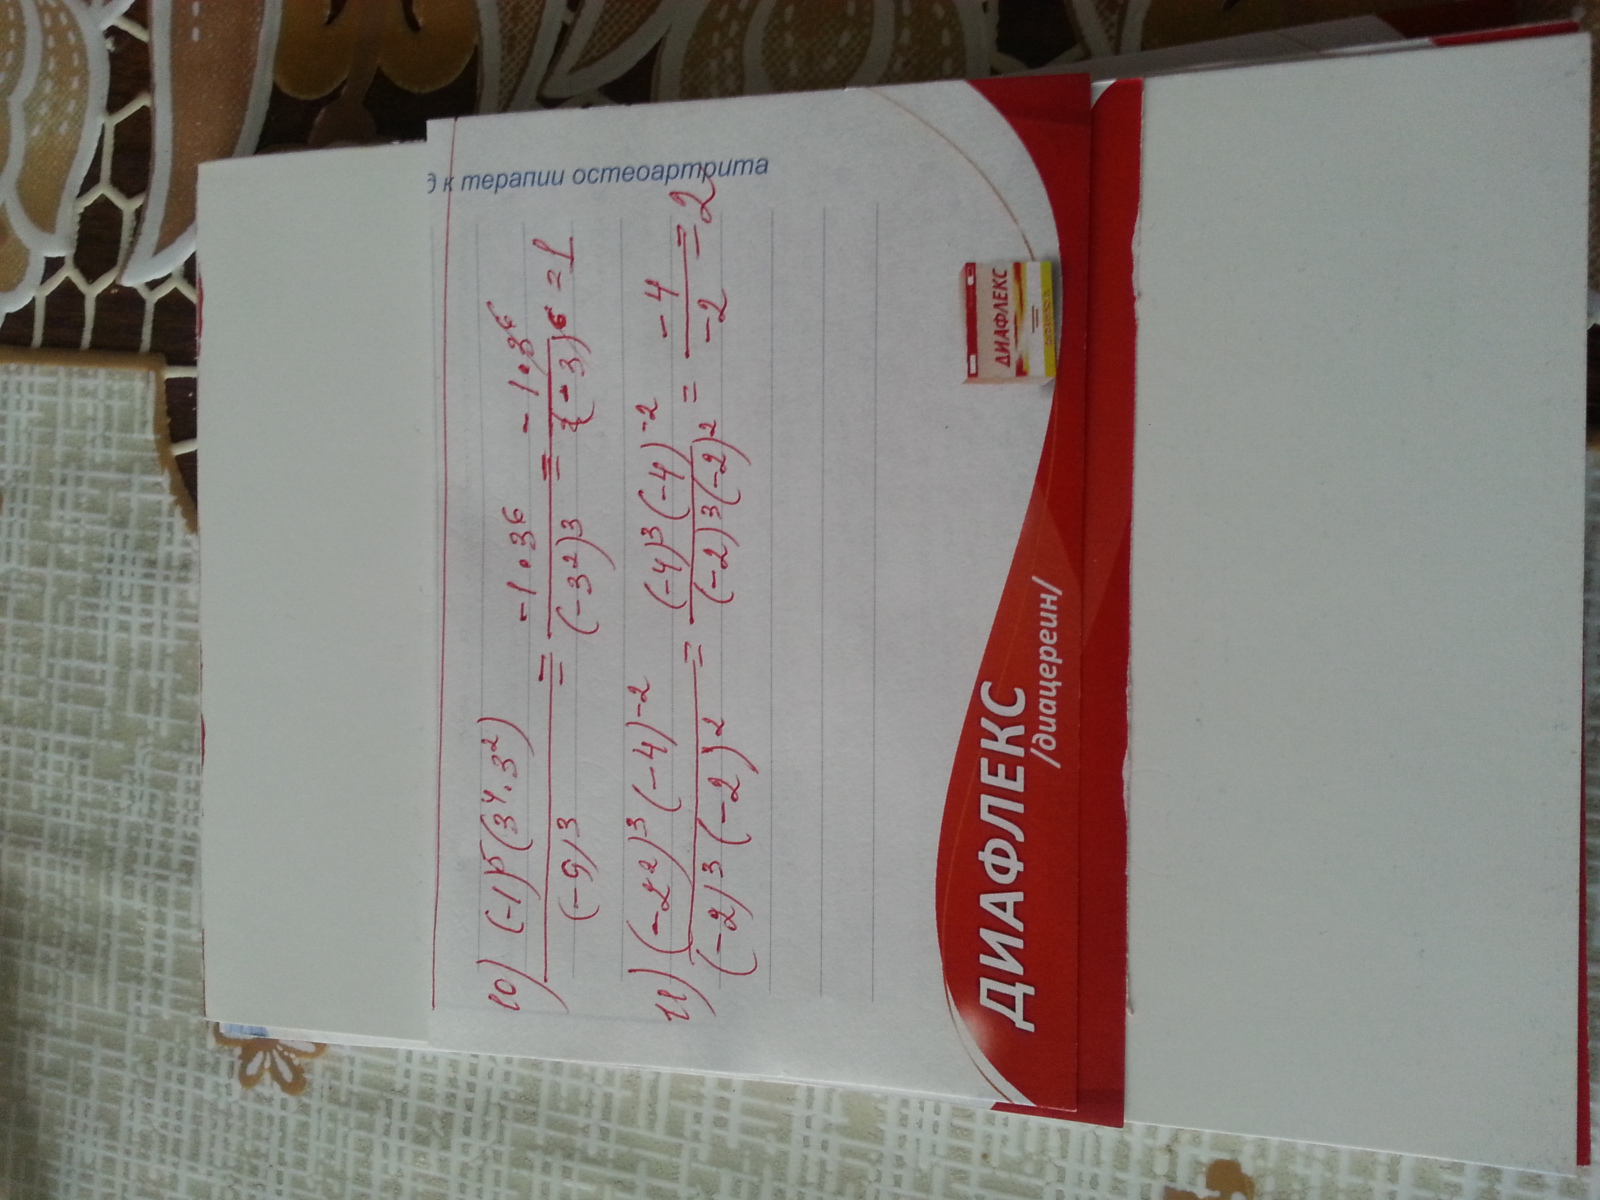 д к терапии остеоартрита
10) (-1)⁵(3⁴·3²) / (-9)³ = -1·3⁶ / (-3²)³ = -1·3⁶ / (-3)⁶ = 1
11) (-2²)³(-4)⁻² / (-2)³(-2)² = (-4)³(-4)⁻² / (-2)³(-2)² = -4 / -2 = 2
ДИАФЛЕКС
ДИАФЛЕКС
/диацереин/